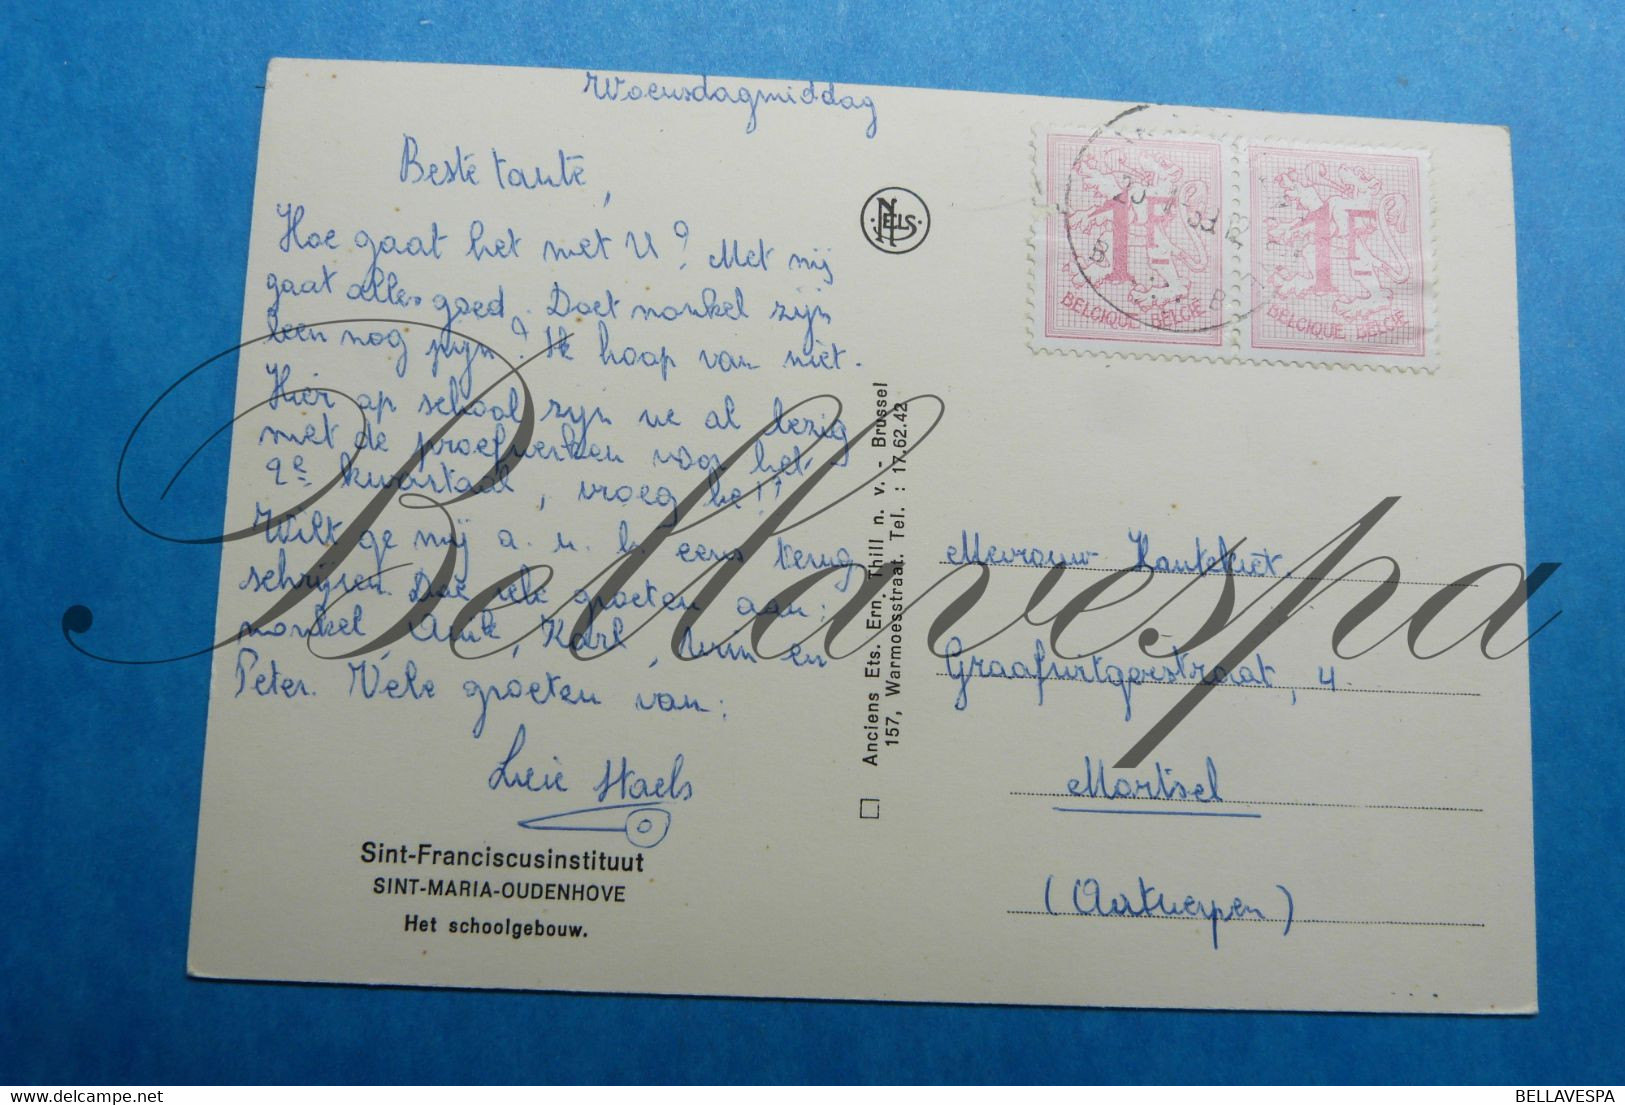 Woensdagmiddag
Beste tante,
Hoe gaat het met U? Met mij
gaat alles goed. Doet nonkel zijn
been nog pijn? Ik hoop van niet.
Hier op school zijn we al bezig
met de proefwerken voor het
2e kwartaal, vroeg he!!
Wilt ge mij a.u.b. eens terug
schrijven. Doe vele groeten aan:
nonkel, Anik, Karl, Wim en
Peter. Vele groeten van:
Lucie Staels
Sint-Franciscusinstituut
SINT-MARIA-OUDENHOVE
Het schoolgebouw.
NELS
Anciens Ets. Ern. Thill n. v. - Brussel
157, Warmoesstraat. Tel. : 17.62.42
1F
BELGIQUE BELGIE
1F
BELGIQUE BELGIE
Mevrouw Hantekiet.
Graafuitgerstraat, 4.
Mortsel
(Antwerpen)
Bellavespa
BELLAVESPA